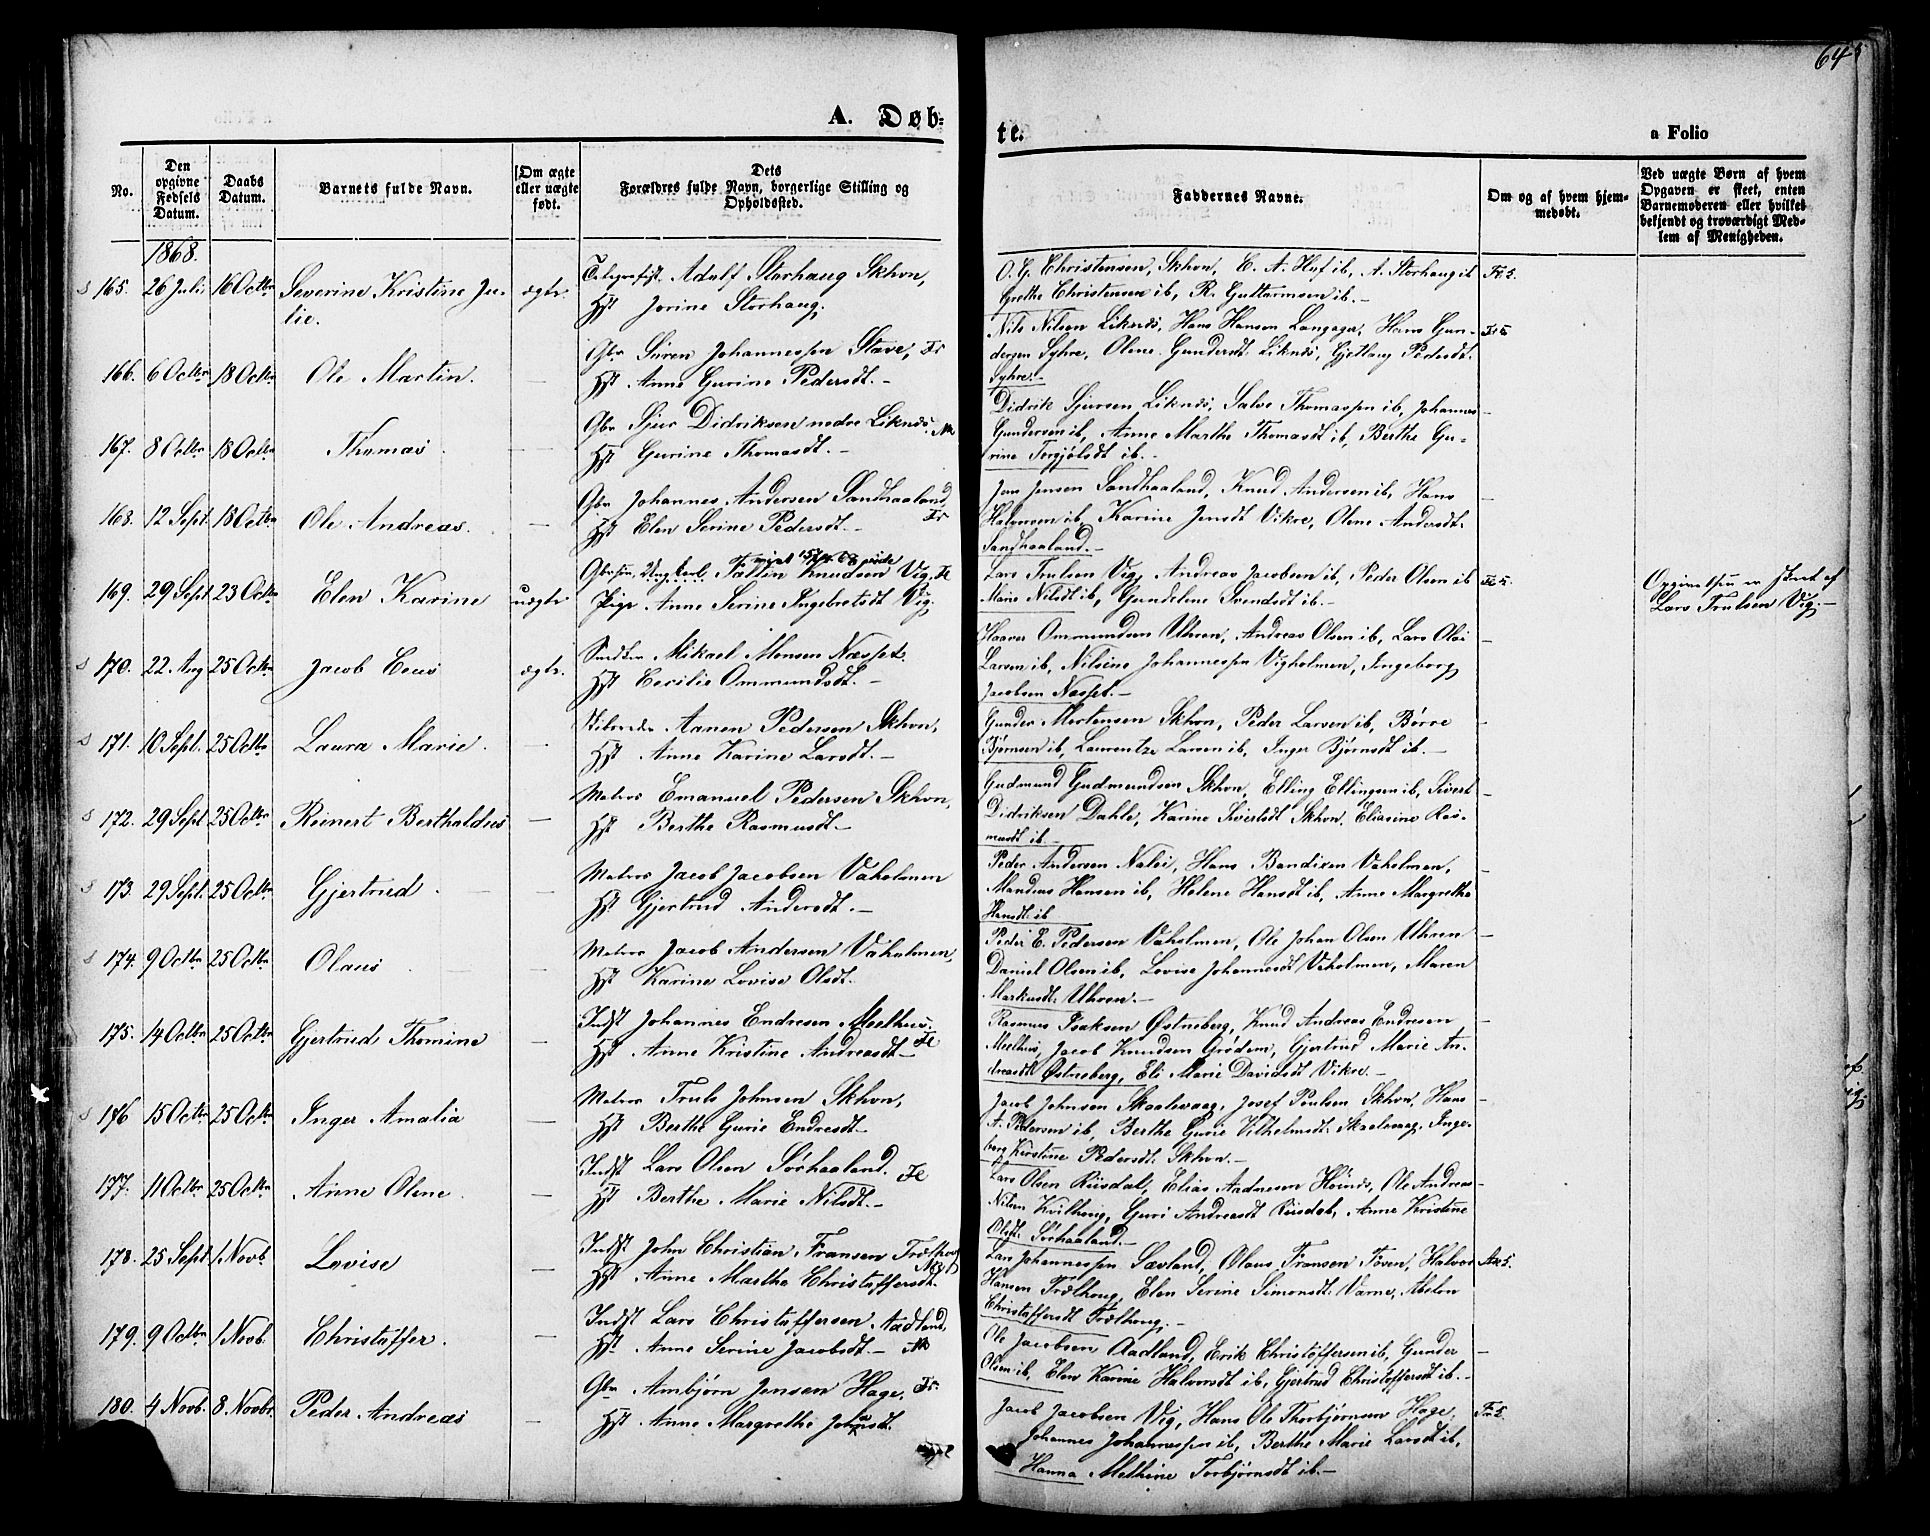 64
A. Døb-
te.
a Folio
No.
Den opgivne Fødsels Datum.
Daabs Datum.
Barnets fulde Navn.
Om ægte eller uægte født.
Dets Forældres fulde Navn, borgerlige Stilling og Opholdssted.
Faddernes Navne.
Om og af hvem hjemmedøbt.
Ved uægte Børn af hvem Opgaven er skeet, enten Barnemoderen eller hvilket bekjendt og troværdigt Medlem af Menigheden.
1868.
165. 26 Juli 16 Octbr Severine Kristine Ju-
lie. ægte. Telegrafist Adolf Storhaug Skhvn,
Hst Jorine Storhaug.
O. G. Christensen, Skhvn, C. A. Huf ib, A. Storhaug ib
Grethe Christensen ib, R. Guttormsen ib.—
166. 6 Octbr 18 Octbr Ole Martin. — Gbr Sören Johannessen Stave, Fr
Hst Anne Gurine Pedersdt.—
Nils Nilsen Liknes, Hans Hansen Langager, Hans Gun-
dersen Syhre, Olene Gundersdt. Liknes, Gjetlaug Pedersdt.
Syhre.—
167. 8 Octbr 18 Octbr Thomas. — Gbr Sjur Didriksen nedre Liknes.
Hst Gurine Thomasdt.—
Didrik Sjursen Liknes, Salve Thomassen ib, Johannes
Gundersen ib, Anne Marthe Thomasdt ib, Berthe Gu-
rine Torgjølsdt ib.—
168. 12 Sept. 18 Octbr Ole Andreas. — Gbr Johannes Andersen Sandhaaland,
Hst Elen Serine Pedersdt.— Fr
Jens Jensen Sandhaaland, Knud Andersen ib, Hans
Halvorsen ib, Karine Jensdt Vikre, Olene Andersdt.
Sandhaaland.—
169. 29 Sept. 23 Octbr Elen Karine uægte Ungkarl Knudsen Vig, Fe
Pige Anne Serine Ingebretsdt Vig.
Lars Trulsen Vig, Andreas Jacobsen ib, Peder Olsen ib
Marie Nilsdt ib, Gundelene Svendsdt ib.—
Opgivelsen er skeet af
Lars Trulsen Vig.—
170. 22 Aug 25 Octbr Jacob ægte. Mikael Monsen Næsset.
Hst Cecilie Ommundsdt.—
Haaver Ommundsen Uhren, Andreas Olsen ib, Lars Olai
Larsen ib, Nilsine Johannessen Vigholmen, Ingeborg
Jacobsen Næsset.—
171. 10 Sept. 25 Octbr Laura Marie. — Aanen Pedersen Skhvn,
Hst Anne Karine Larsdt.—
Gunder Mortensen Skhvn, Peder Larsen ib, Børre
Bjørnsen ib, Laurentze Larsen ib, Inger Bjørnsdt ib.—
172. 29 Sept 25 Octbr Reinert Berthaldus — Matros Emanuel Pedersen Skhvn,
Hst Berthe Rasmusdt.—
Gudmund Gudmundsen Skhvn, Elling Ellingsen ib, Sivert
Didriksen Dahle, Karine Sivertsdt Skhvn, Eliasine Ras-
musdt ib.—
173. 29 Sept. 25 Octbr Gjertrud. — Matros Jacob Jacobsen Vaholmen
Hst Gjertrud Andersdt.—
Peder Andersen Naloi, Hans Bandixen Vaholmen,
Mandius Hansen ib, Helene Hansdt ib, Anne Margrethe
Hansdt. ib
174. 9 Octbr 25 Octbr Olaus — Matros Jacob Andersen Vaholmen,
Hst Karine Lovise Olsdt.
Peder E. Pedersen Vaholmen, Ole Johan Olsen Uhren
Daniel Olsen ib, Lovise Johannesdt Vaholmen, Maren
Markusdt. Uhren.—
175. 14 Octbr 25 Octbr Gjertrud Thomine — Indst Johannes Endresen Meelhus.
Hst Anne Kristine Andreasdt— Fe
Rasmus Isaksen Østneberg, Knud Andreas Endresen
Meelhus, Jacob Knudsen Grødem, Gjertrud Marie An-
dreasdt Østneberg, Eli Marie Davidsdt Vikre.—
176 15 Octbr 25 Octbr Inger Amalia — Matros Truls Johnsen Skhvn,
Hst Berthe Gurie Endresdt.—
Jacob Johnsen Skaalevaag, Josef Poulsen Skhvn, Hans
A. Pedersen ib, Berthe Gurie Vilhelmsdt. Skaalevaag, Inge-
borg Kirstine Pedersdt. Skhvn.—
177. 11 Octbr 25 Octbr Anne Olene. — Indst Lars Olsen Sørhaaland. Fe
Hst Berthe Marie Nilsdt.—
Lars Olsen Risdal, Elias Aadnesen Høines, Ole Andreas
Nilsen Kvilhoug, Guri Andreasdt Risdal, Anne Kristine
Olsdt. Sørhaaland.—
178. 25 Sept 1. Novb. Lovise — Indst John Christian Fransen Trælhoug
Hst Anne Marthe Christoffersdt.
Lars Johannessen Sævland, Olaus Fransen Foven, Halvor
Hansen Trælhoug, Elen Serine Simonsdt. Varne, Abelon
Christoffersdt Trælhoug.—
179. 9 Octbr 1. Novb. Christoffer. — Indst Lars Christoffersen Aadland,
Hst. Anne Serine Jacobsdt.—
Ole Jacobsen Aadland, Erik Christoffersen ib, Gunder
Olsen ib, Elen Karine Halvorsdt ib, Gjertrud Christoffersdt ib.—
180. 4 Novb. 8. Novbr. Peder Andreas — Gbr Ambjørn Jensen Hage, Fr.
Hst Anne Margrethe Johnsdt.
Jacob Jacobsen Vig, Hans Ole Thorbjørnsen Hage,
Johannes Johannessen ib, Berthe Marie Larsdt ib,
Hanna Mathine Torbjørnsdt ib.—